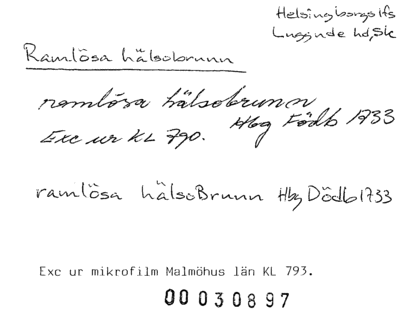 Helsingborgs lfs
Luggude hd, Sk
Ramlösa hälsobrunn
ramlösa hälsobrunn
Hbg Födb 1733
Exc ur KL 790.
ramlösa hälsoBrunn Hbg Dödb 1733
Exc ur mikrofilm Malmöhus län KL 793.
00030897